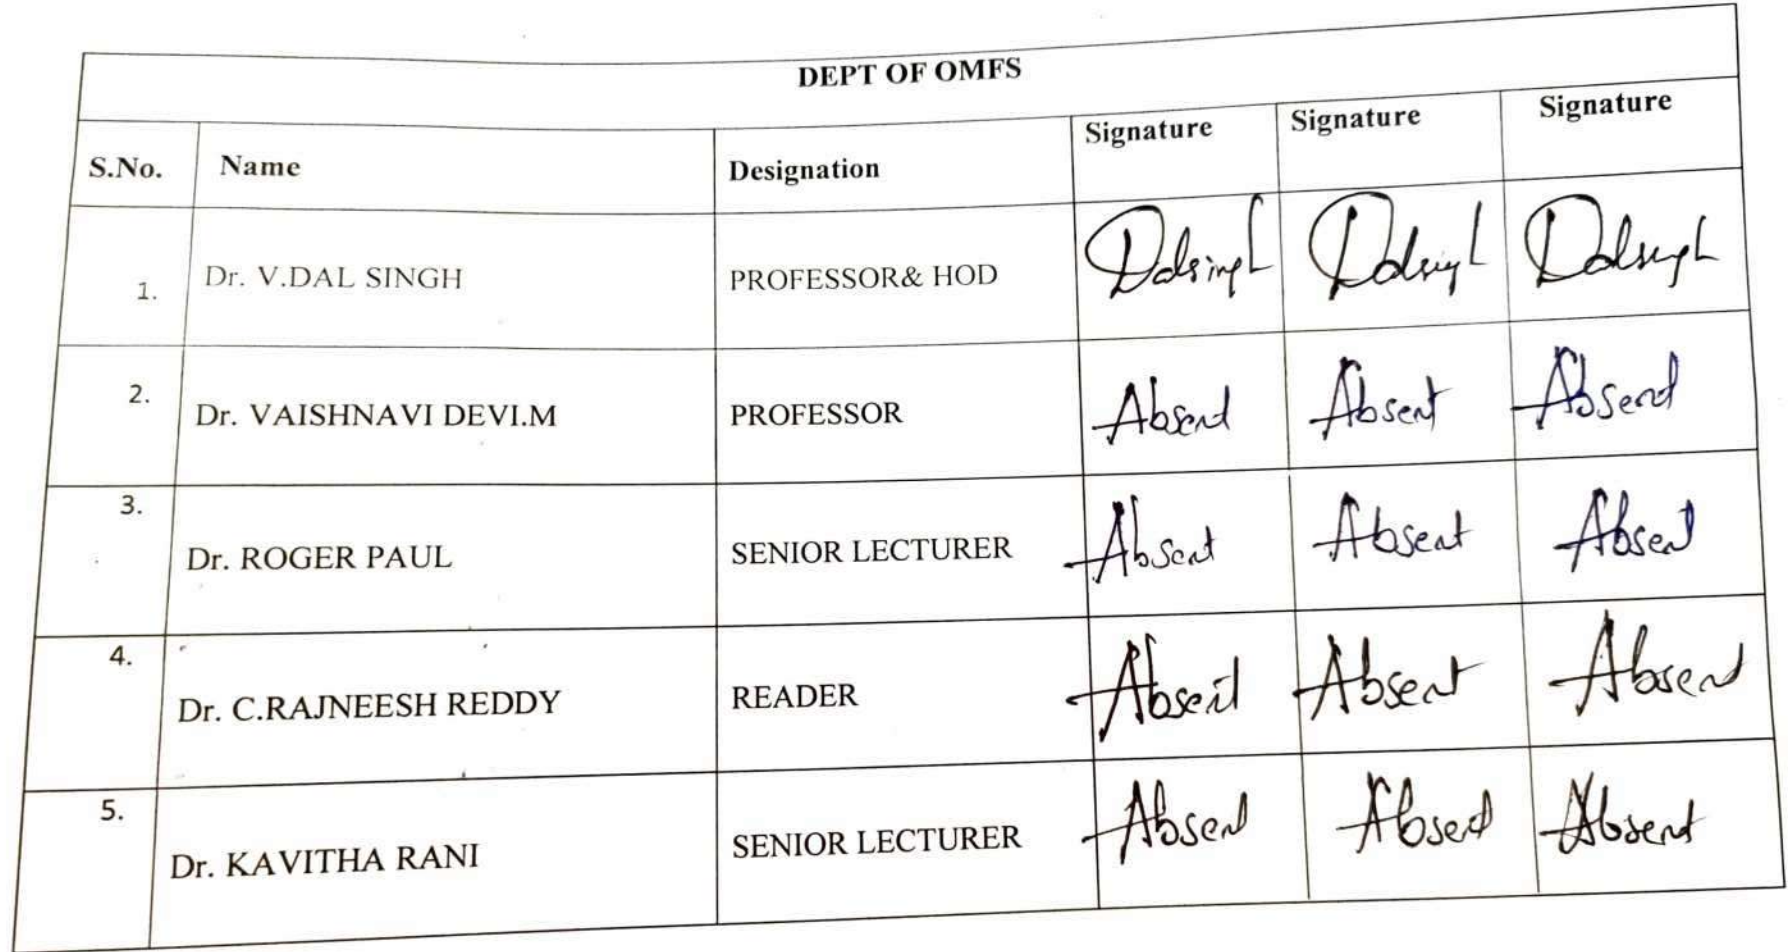 DEPT OF OMFS
S.No. Name Designation Signature Signature Signature
1. Dr. V.DAL SINGH PROFESSOR& HOD Dalsingh Dalsingh Dalsingh
2. Dr. VAISHNAVI DEVI.M PROFESSOR Absent Absent Absent
3. Dr. ROGER PAUL SENIOR LECTURER Absent Absent Absent
4. Dr. C.RAJNEESH REDDY READER Absent Absent Absent
5. Dr. KAVITHA RANI SENIOR LECTURER Absent Absent Absent